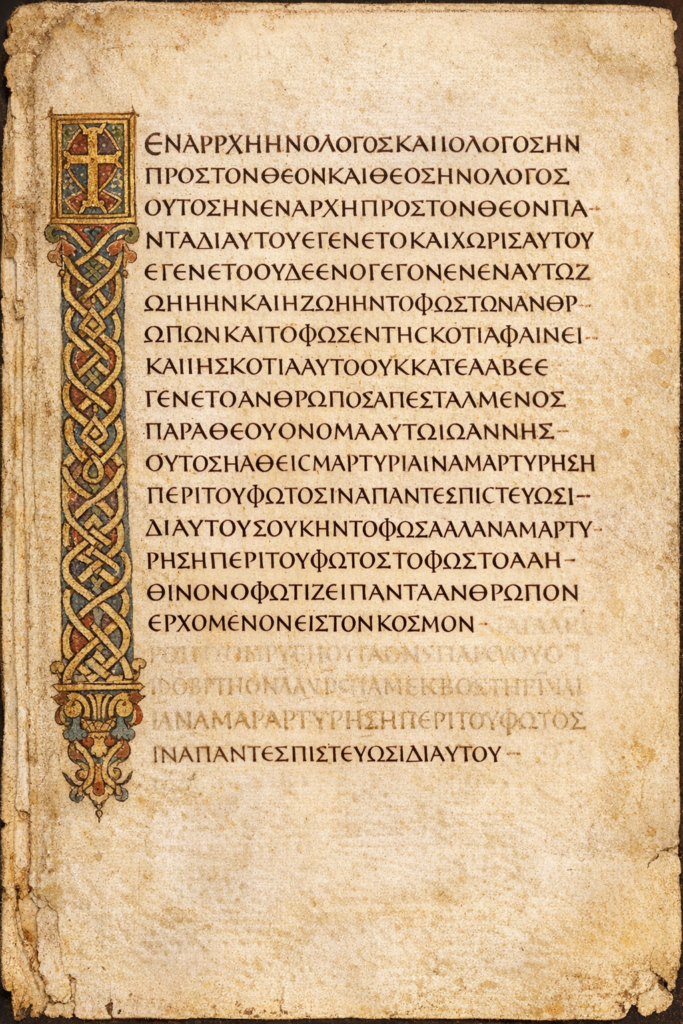 ΕΝΑΡΡΧΗΗΝΟΛΟΓΟΣΚΑΙΙΟΛΟΓΟΣΗΝ
ΠΡΟΣΤΟΝΘΕΟΝΚΑΙΘΕΟΣΗΝΟΛΟΓΟΣ
ΟΥΤΟΣΗΝΕΝΑΡΧΗΠΡΟΣΤΟΝΘΕΟΝΠΑ-
ΝΤΑΔΙΑΥΤΟΥΕΓΕΝΕΤΟΚΑΙΧΩΡΙΣΑΥΤΟΥ
ΕΓΕΝΕΤΟΟΥΔΕΕΝΟΓΕΓΟΝΕΝΕΝΑΥΤΩΖ
ΩΗΗΗΝΚΑΙΗΖΩΗΗΝΤΟΦΩΣΤΩΝΑΝΘΡ-
ΩΠΩΝΚΑΙΤΟΦΩΣΕΝΤΗϹΚΟΤΙΑΦΑΙΝΕΙ-
ΚΑΙΙΗΣΚΟΤΙΑΑΥΤΟΟΥΚΚΑΤΕΑΑΒΕΕ
ΓΕΝΕΤΟΑΝΘΡΩΠΟΣΑΠΕΣΤΑΛΜΕΝΟΣ
ΠΑΡΑΘΕΟΥΟΝΟΜΑΑΥΤΩΙΩΑΝΝΗΣ-
ΟΥΤΟΣΗΑΘΕΙϹΜΑΡΤΥΡΙΑΙΝΑΜΑΡΤΥΡΗΣΗ
ΠΕΡΙΤΟΥΦΩΤΟΣΙΝΑΠΑΝΤΕΣΠΙϹΤΕΥΩΣΙ-
ΔΙΑΥΤΟΥΣΟΥΚΗΝΤΟΦΩΣΑΑΛΑΝΑΜΑΡΤΥ-
ΡΗΣΗΠΕΡΙΤΟΥΦΩΤΟΣΤΟΦΩΣΤΟΑΑΗ-
ΘΙΝΟΝΟΦΩΤΙΖΕΙΠΑΝΤΑΑΝΘΡΩΠΟΝ
ΕΡΧΟΜΕΝΟΝΕΙΣΤΟΝΚΟΣΜΟΝ-
ΙΑΝΑΜΑΡΑΡΤΥΡΗΣΗΠΕΡΙΤΟΥΦΩΤΟΣ
ΙΝΑΠΑΝΤΕΣΠΙΣΤΕΥΩΣΙΔΙΑΥΤΟΥ-